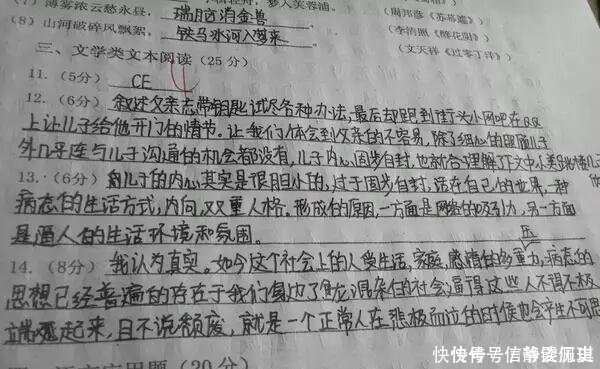 (7) 薄雾浓云愁永昼, 瑞脑消金兽 (周邦彦《苏幕遮》)
(8) 山河破碎风飘絮, 铁马冰河入梦来 (李清照《醉花阴》)
(文天祥《过零丁洋》)
三、文学类文本阅读 (25 分)
11. (5分) CE
12. (6分) 叙述父亲忘带钥匙试尽各种办法,最后却跑到街头小网吧在QQ
上让儿子给他开门的情节。让我们体会到父亲的不容易,除了细心的照顾儿子
外几乎连与儿子沟通的机会都没有,儿子内心固步自封,也就合理解了文中
13. (6分) 儿子的内心其实是很胆小的,过于固步自封,活在自己的世界,一种
病态的生活方式,内向,双重人格。形成的原因,一方面是网络的吸引力,另一方面
是逼人的生活环境和氛围。
压
14. (8分) 我认为真实。如今这个社会上的人受生活,家庭,感情的多重力,病态的
思想已经普遍的存在于我们身边了,复杂的社会逼得这些人不得不极
端起来,且不说颓废,就是一个正常人在悲极而泣的时候也会产生不可思
(20分)
快传号/信静谈佩琪